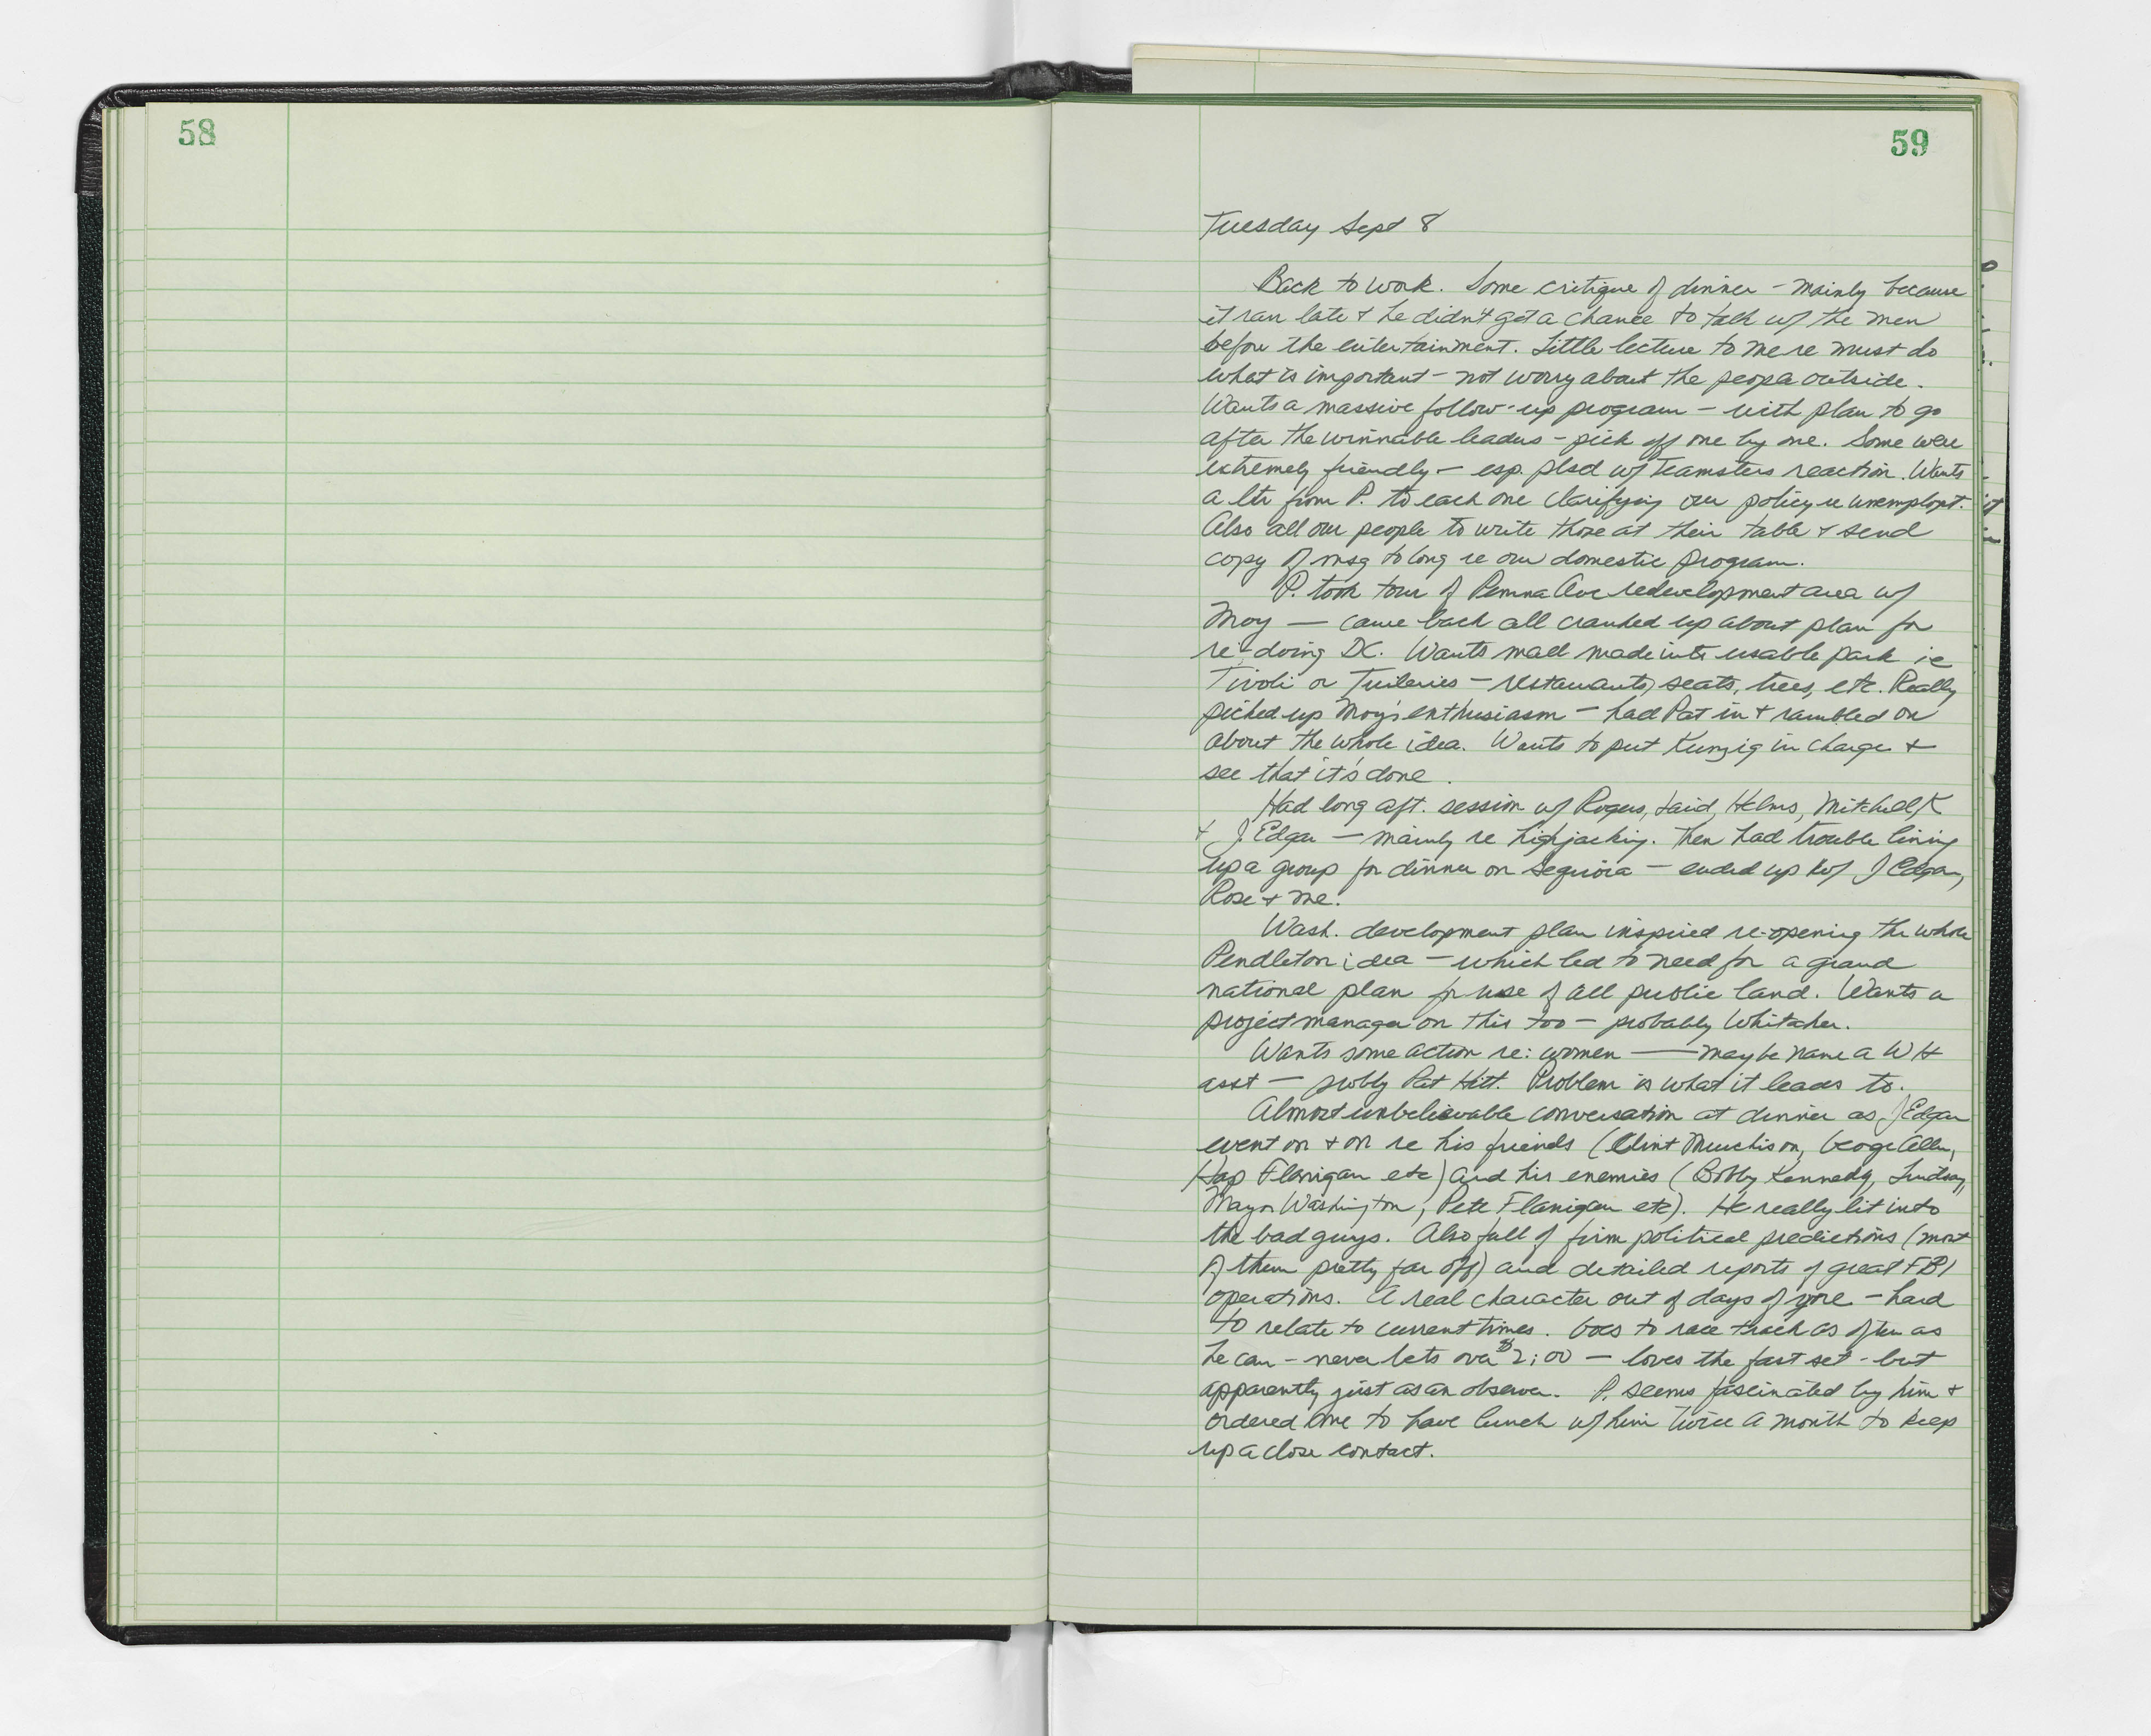 58
59
Tuesday Sept 8
Back to work. Some critique of dinner - mainly because
it ran late & he didn't get a chance to talk w/ the men
before the entertainment. Little lecture to me re must do
what is important - not worry about the people outside.
Wants a massive follow-up program - with plan to go
after the winnable leaders - pick off one by one. Some were
extremely friendly - esp. plsd w/ Teamsters reaction. Wants
a ltr from P. to each one clarifying our policy re unemploymt.
Also all our people to write those at their table & send
copy of msg to Cong re our domestic program.
P. took tour of Penna Ave redevelopment area w/
Moy — came back all cranked up about plan for
re-doing DC. Wants mall made into usable park ie
Tivoli or Tuileries - restaurants, seats, trees, etc. Really
picked up Moy's enthusiasm - had Pat in & rambled on
about the whole idea. Wants to put Kunzig in charge &
see that it's done.
Had long aft. session w/ Rogers, Laird, Helms, Mitchell, K
& J. Edgar — mainly re highjacking. Then had trouble lining
up a group for dinner on Sequoia - ended up w/ J Edgar,
Rose & me.
Wash. development plan inspired re-opening the whole
Pendleton idea - which led to need for a grand
national plan for use of all public land. Wants a
project manager on this too - probably Whitaker.
Wants some action re: women — maybe name a WH
asst - probly Pat Hitt. Problem is what it leads to.
Almost unbelievable conversation at dinner as J Edgar
went on & on re his friends (Clint Murchison, George Allen,
Hap Flanigan etc) and his enemies (Bobby Kennedy, Lindsay,
Mayor Washington, Pete Flanigan etc). He really lit into
the bad guys. Also full of firm political predictions (most
of them pretty far off) and detailed reports of great FBI
operations. A real character out of days of yore - hard
to relate to current times. Goes to race track as often as
he can - never bets over $2:00 - loves the fast set - but
apparently just as an observer. P. seems fascinated by him &
ordered me to have lunch w/ him twice a month to keep
up a close contact.